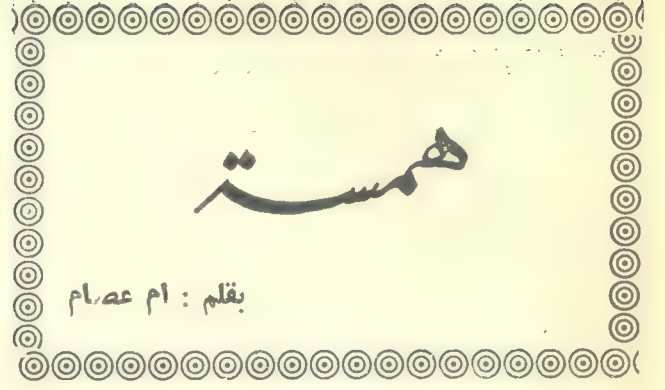 همسة
بقلم : ام عصام